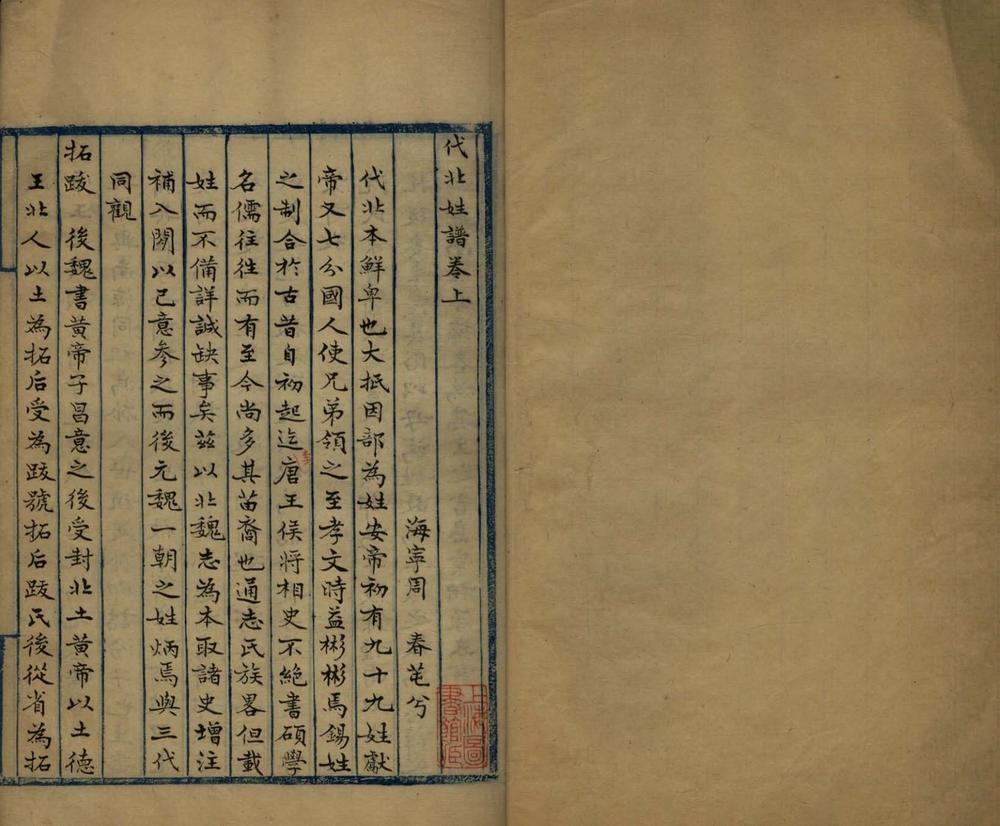 代北姓譜卷上
海寧周春芚兮
代北本鮮卑也大抵因部為姓安帝初有九十九姓獻
帝又七分國人使兄弟領之至孝文時益彬彬焉錫姓
之制合於古昔自初起迄唐王侯將相史不絕書碩學
名儒往往而有至今尚多其苗裔也通志氏族畧但載
姓而不備詳誠缺事矣茲以北魏志為本取諸史增注
補入閒以己意參之而後元魏一朝之姓炳焉與三代
同觀
拓跋 後魏書黃帝子昌意之後受封北土黃帝以土德
王北人以土為拓后受為跋號拓后跋氏後從省為拓
上海圖書館藏